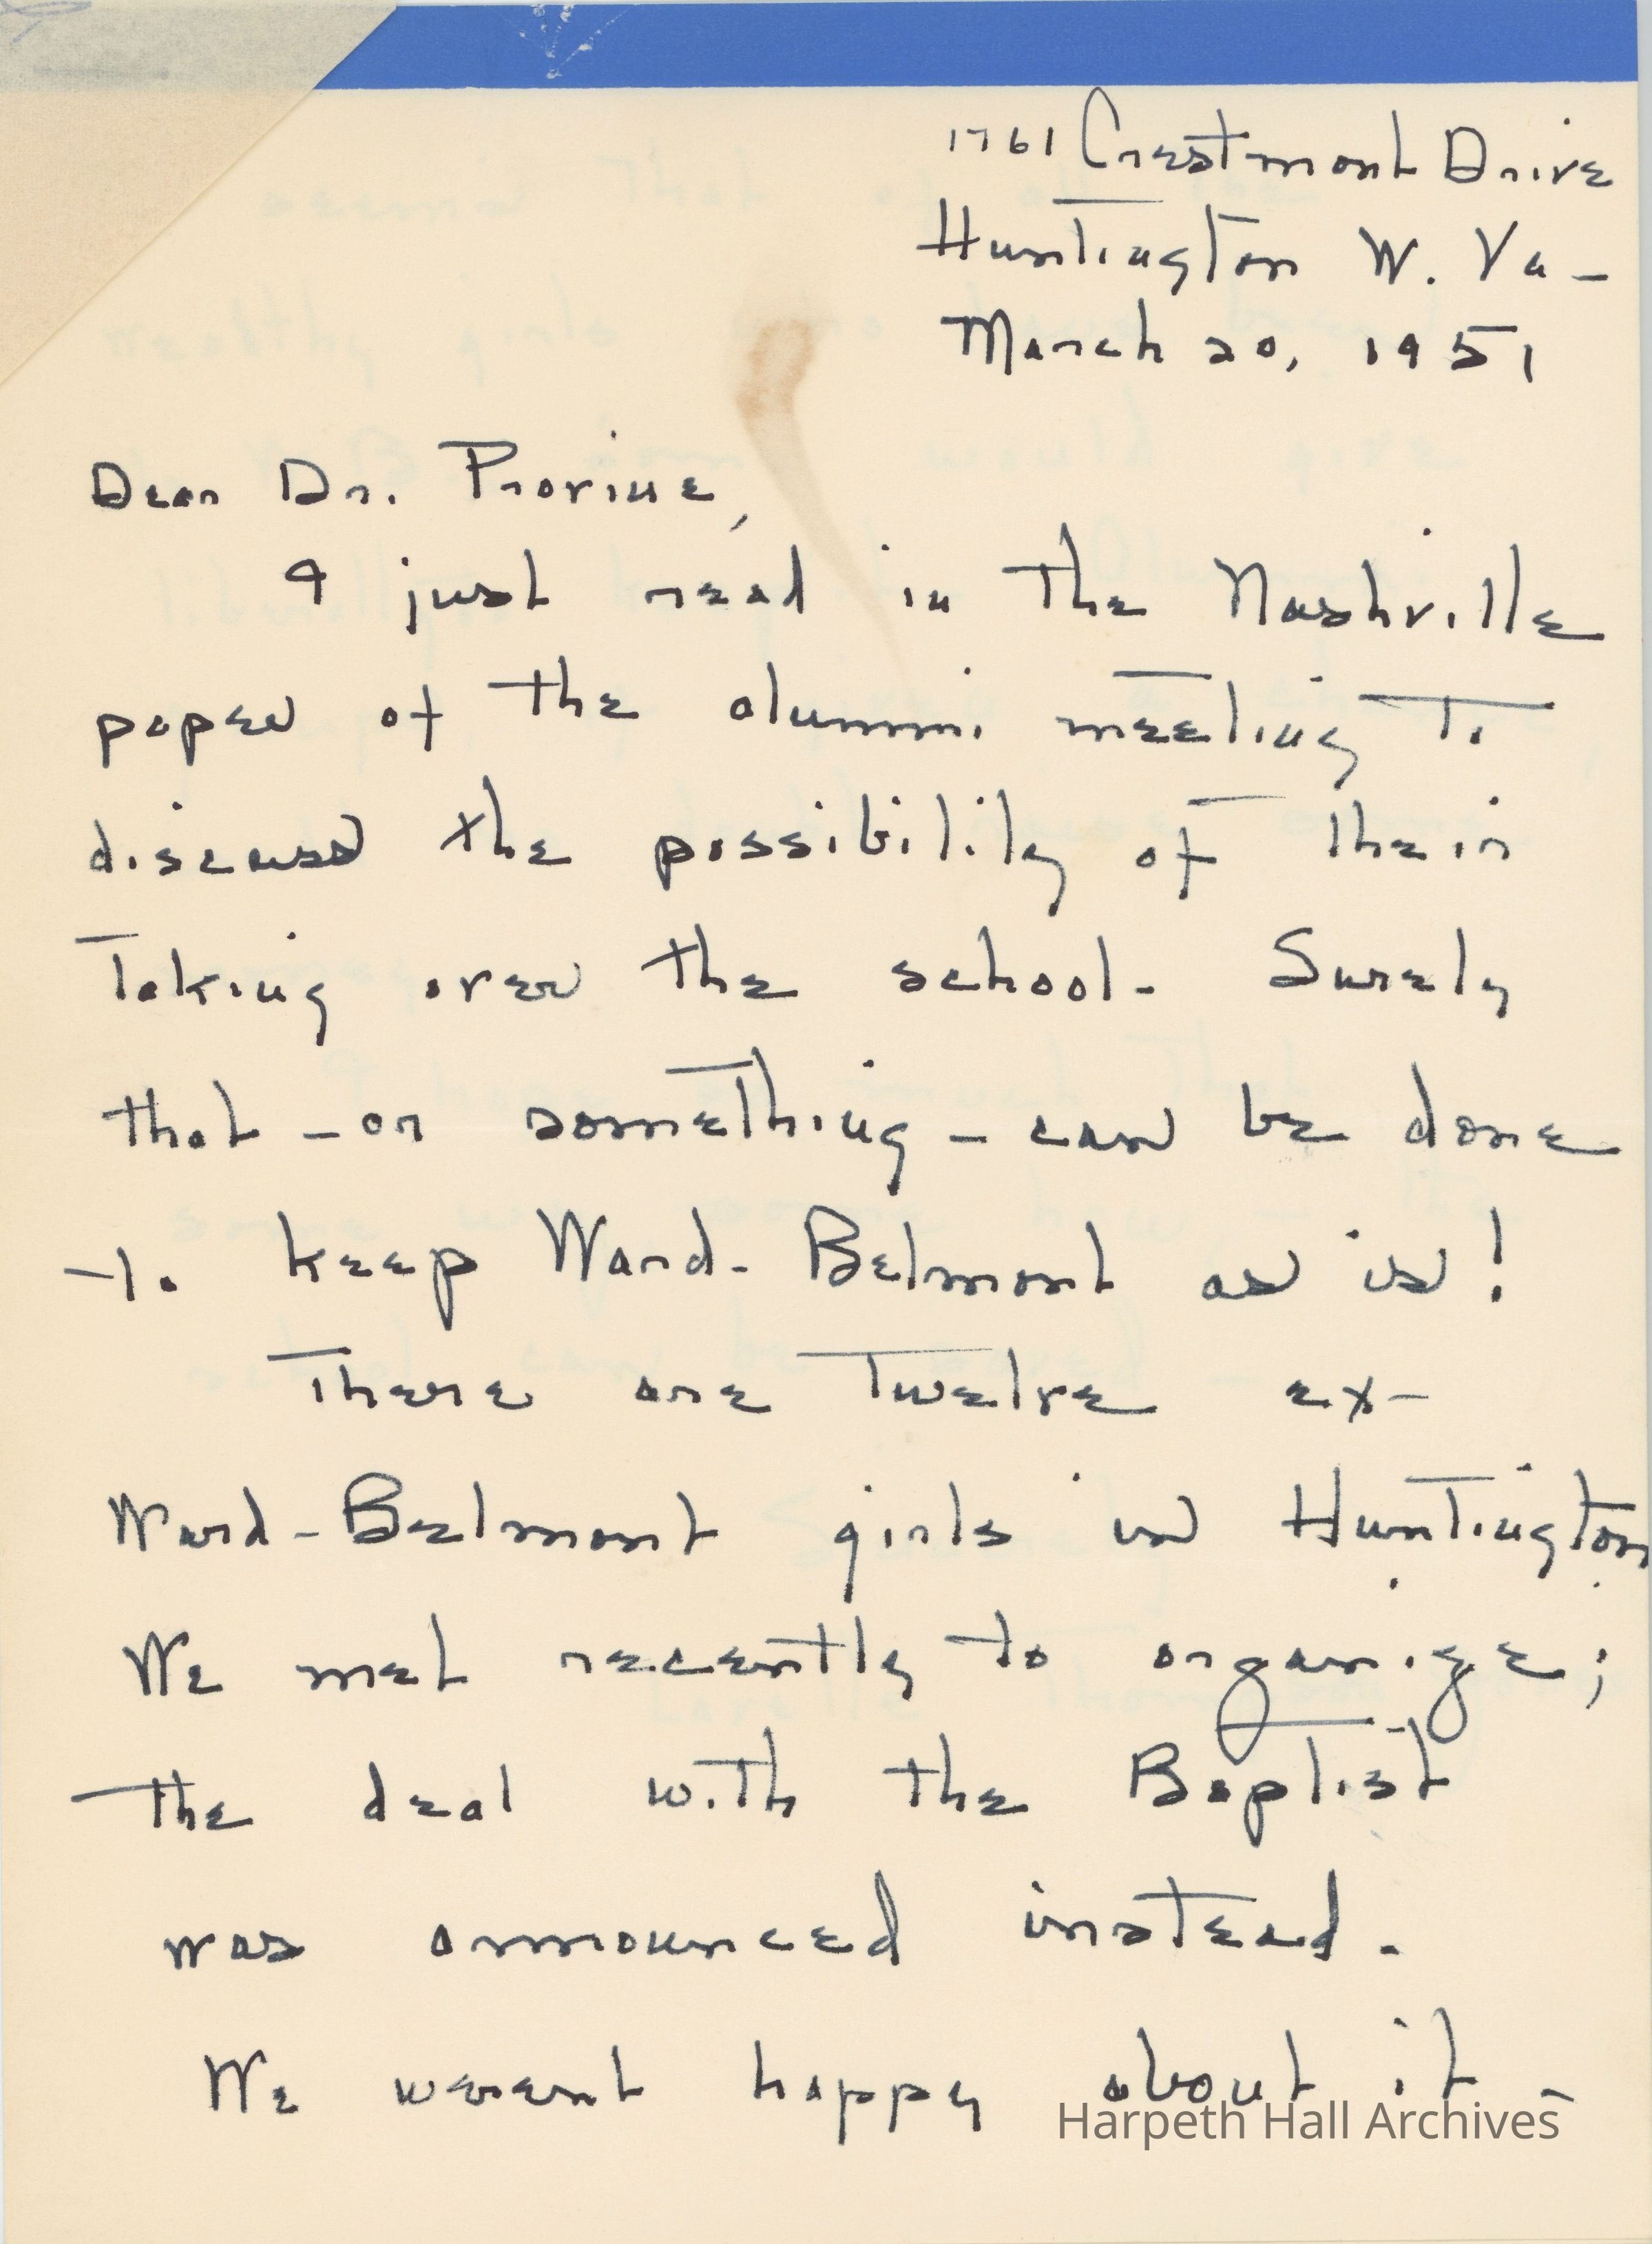 1761 Crestmont Drive
Huntington W. Va -
March 20, 1951
Dear Dr. Provine,
I just read in the Nashville
paper of the alumni meeting to
discuss the possibility of their
taking over the school - Surely
that - or something - can be done
to keep Ward-Belmont as is!
There are twelve ex-
Ward-Belmont girls in Huntington.
We met recently to organize;
the deal with the Baptist
was announced instead.
We werent happy about it -
Harpeth Hall Archives